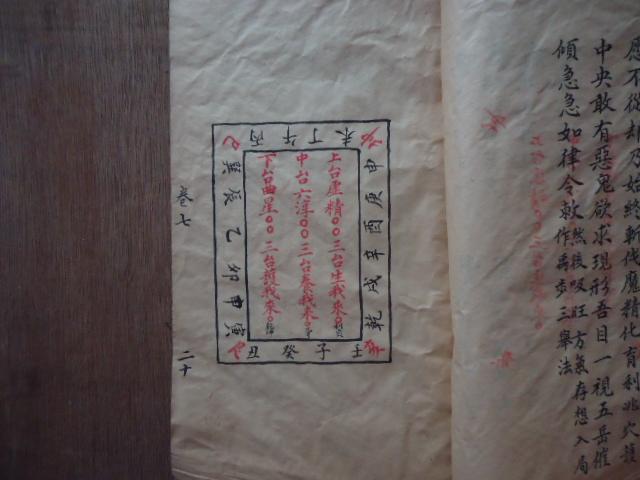 愿不從却及始終斬伐魔精化育利兆久護
中央敢有惡鬼欲求現形吾目一視五岳催
傾急急如律令敕然後吸旺方氣存想入局
作再步三舉法
丙午丁未
申庚酉辛戌乾
壬子癸丑
寅甲卯乙辰巽巳
上台虛精○○三台生我來○
中台六淳○○三台養我來○
下台曲星○○三台護我來○
卷七
二十